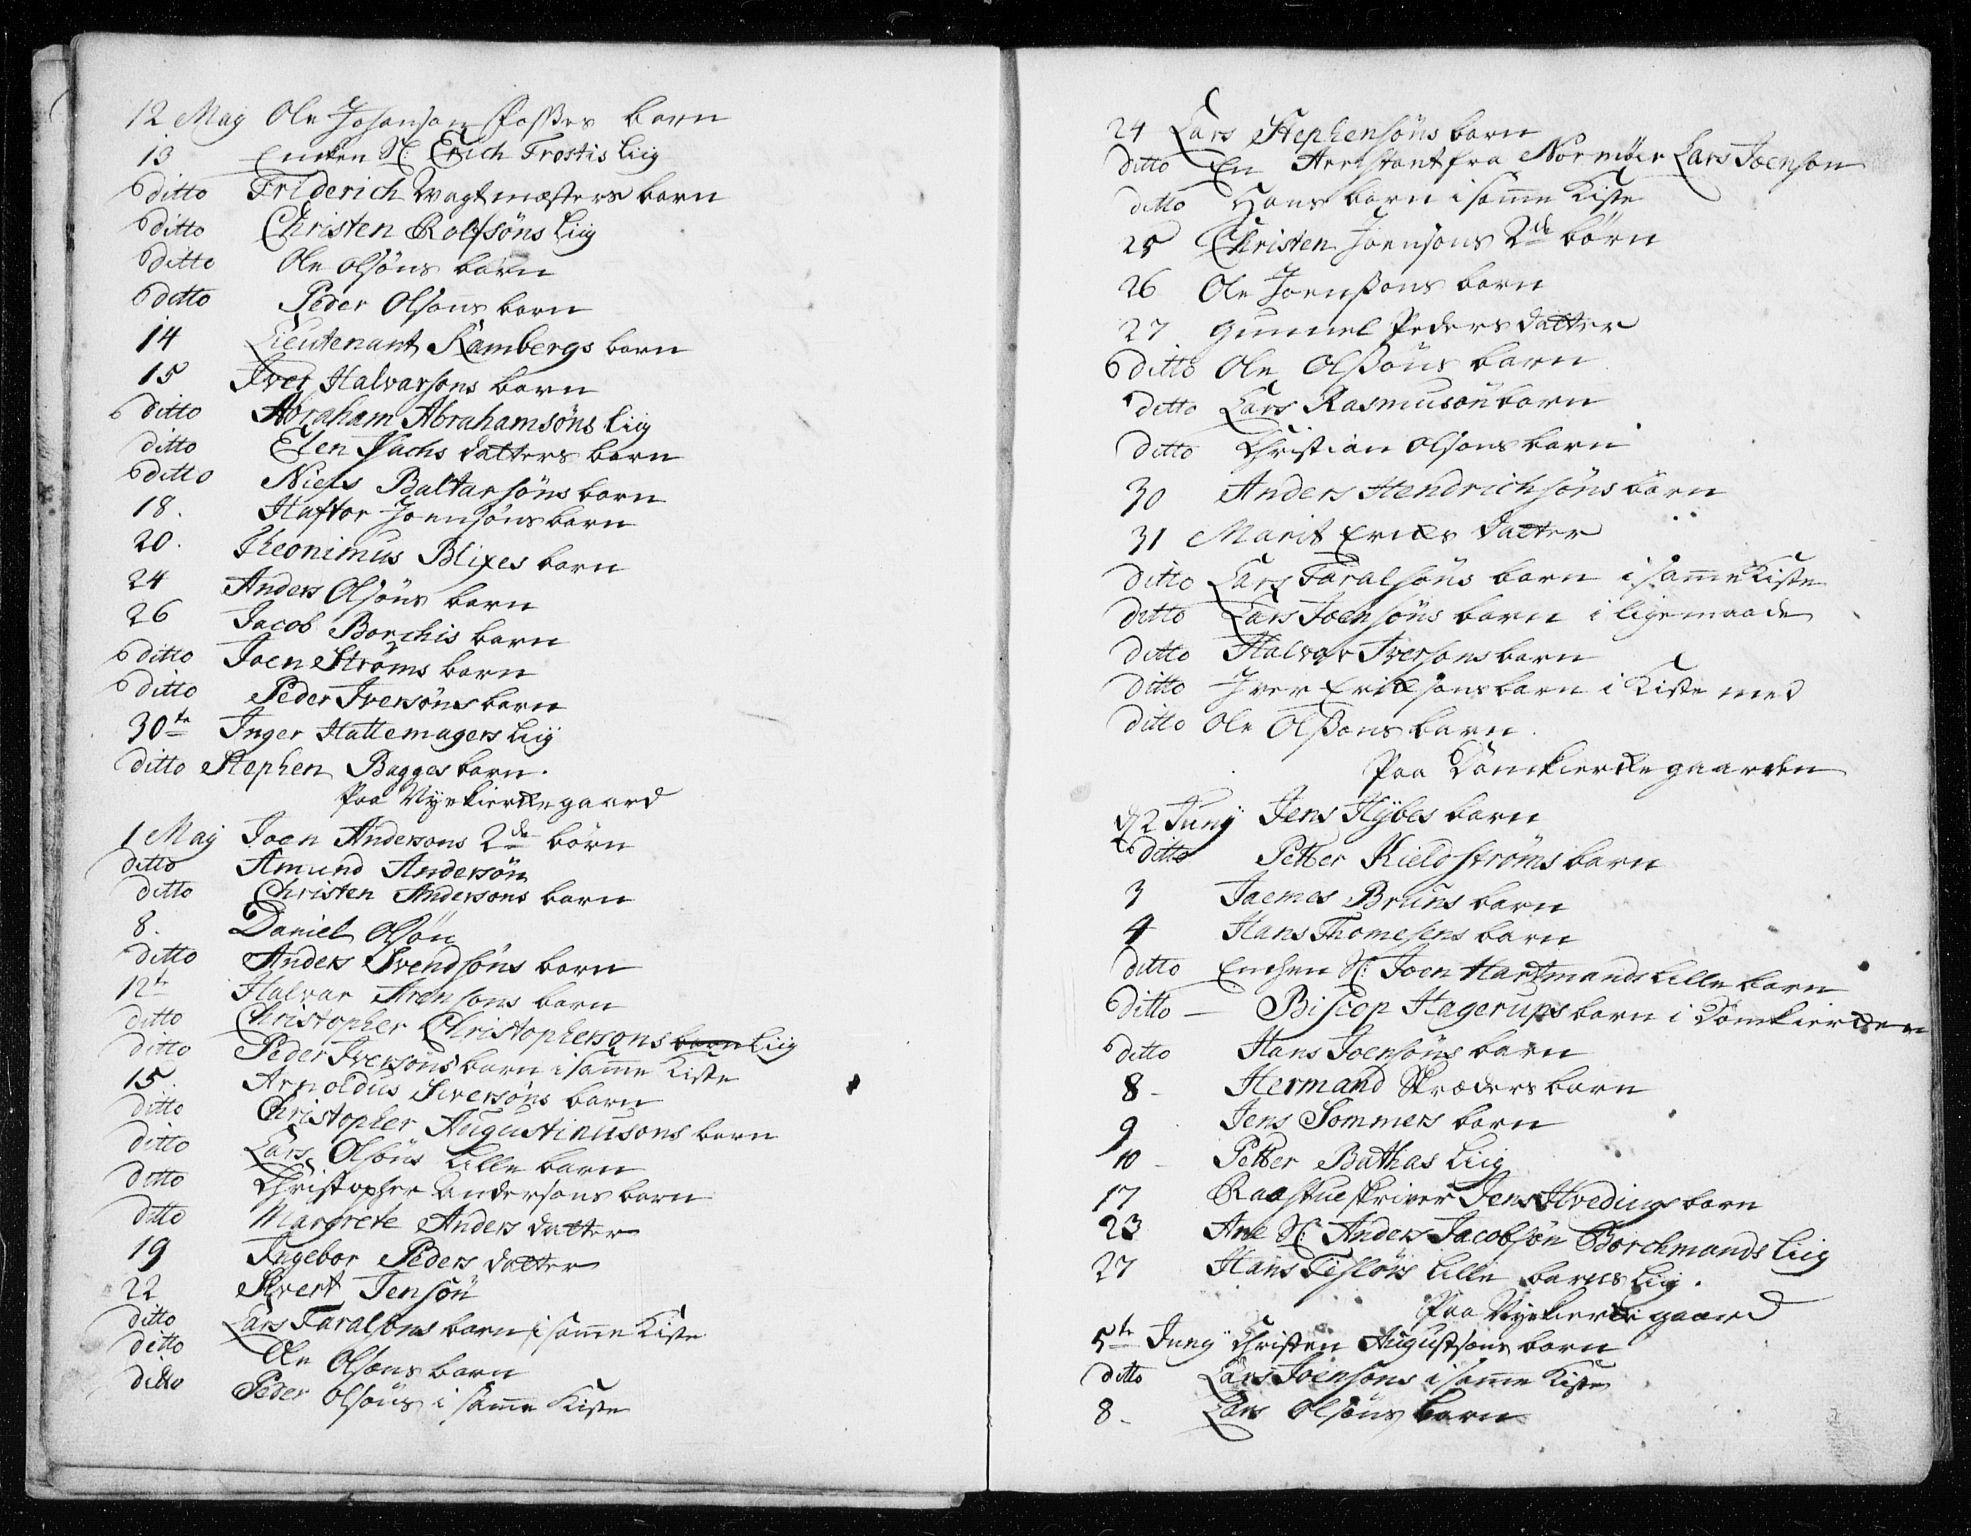 12 Maÿ Ole Johanson Posses barn
13 Encken Sl: Erich Frostis liig
ditto Friderich Wagtmæsters barn
ditto Christen Rolfsöns liig
ditto Ole olsöns barn
ditto Peder Olsons barn
14 Lieutenant Rambergs barn
15 Iver Halvarsons barn
ditto Abraham Abrahamsöns liig
ditto Elen Isachs datters barn
ditto Niels Baltarsöns barn
18. Haftor Joensöns barn
20. Jheonimus Blixes barn
24 Anders Olsöns barn
26 Jacob Borchis barn
ditto Joen Ströms barn
ditto Peder Iversöns barn
30te Inger Hattemagers liig
ditto Stephen Bagges barn.
Paa Nyekierkegaard
1 Maÿ Joen Andersons 2de börn
ditto Amund Andersön
ditto Christen Andersons barn
8. Daniel Olsön
ditto Anders Svendsöns barn
12te Halvar Arensons barn
ditto Christopher Christophersons barn liig
ditto Peder Iversöns barn i samme Kiste
15. Arnoldus Siversöns barn
ditto Christopher Augustinusons barn
ditto Lars Olsöns lille barn
ditto Christopher Andersons barn
ditto Margrete Anders datter
19 Ingebor Peders datter
22 Sivert Jensön
ditto Lars Taralsons barn i samme Kiste
ditto Ole Olsons barn
ditto Peder Olsöns i samme Kiste
24 Lars Stephensöns barn
ditto En Arrestant fra Normöer Lars Joenson
ditto Hans barn i samme Kiste
25 Christen Joensons 2de börn
26 Ole Joenssons barn
27 Gunnel Peders datter
ditto Ole Olssöns barn
ditto Lars Rasmusön barn
ditto Christian Olsons barn
30 Anders Hendrichsöns barn
31 Marit Ericks datter
ditto Lars Taralsöns barn i samme Kiste
ditto Lars Joensöns barn i ligemaade
ditto Halvar Iversons barn
ditto Iver Ericksons barn i Kiste med
ditto Ole Olssons barn.
Paa Domkierkegaarden
d 2 Junÿ Jens Hÿbes barn
ditto Petter Kieldströms barn
3 Jaemes Bruns barn
4 Hans Thomesens barn
ditto Enchen Sl: Joen Hartmands lille barn
ditto — Biscop Hagerups barn i Domkiercken
ditto Hans Joensöns barn
8 - Hermand Skræders barn
9 Jens Sommers barn
10 - Petter Bathas liig
17 Raastueskriver Jens Hvedings barn
23 Ane Sl: Anders Jacobsön Borchmands liig
27 Hans Tislörs lille barns liig.
Paa Nyekierkegaard
5te Junÿ Christen Augustsons barn
ditto Lars Joensons i samme Kiste
8 - Lars Olsöns barn